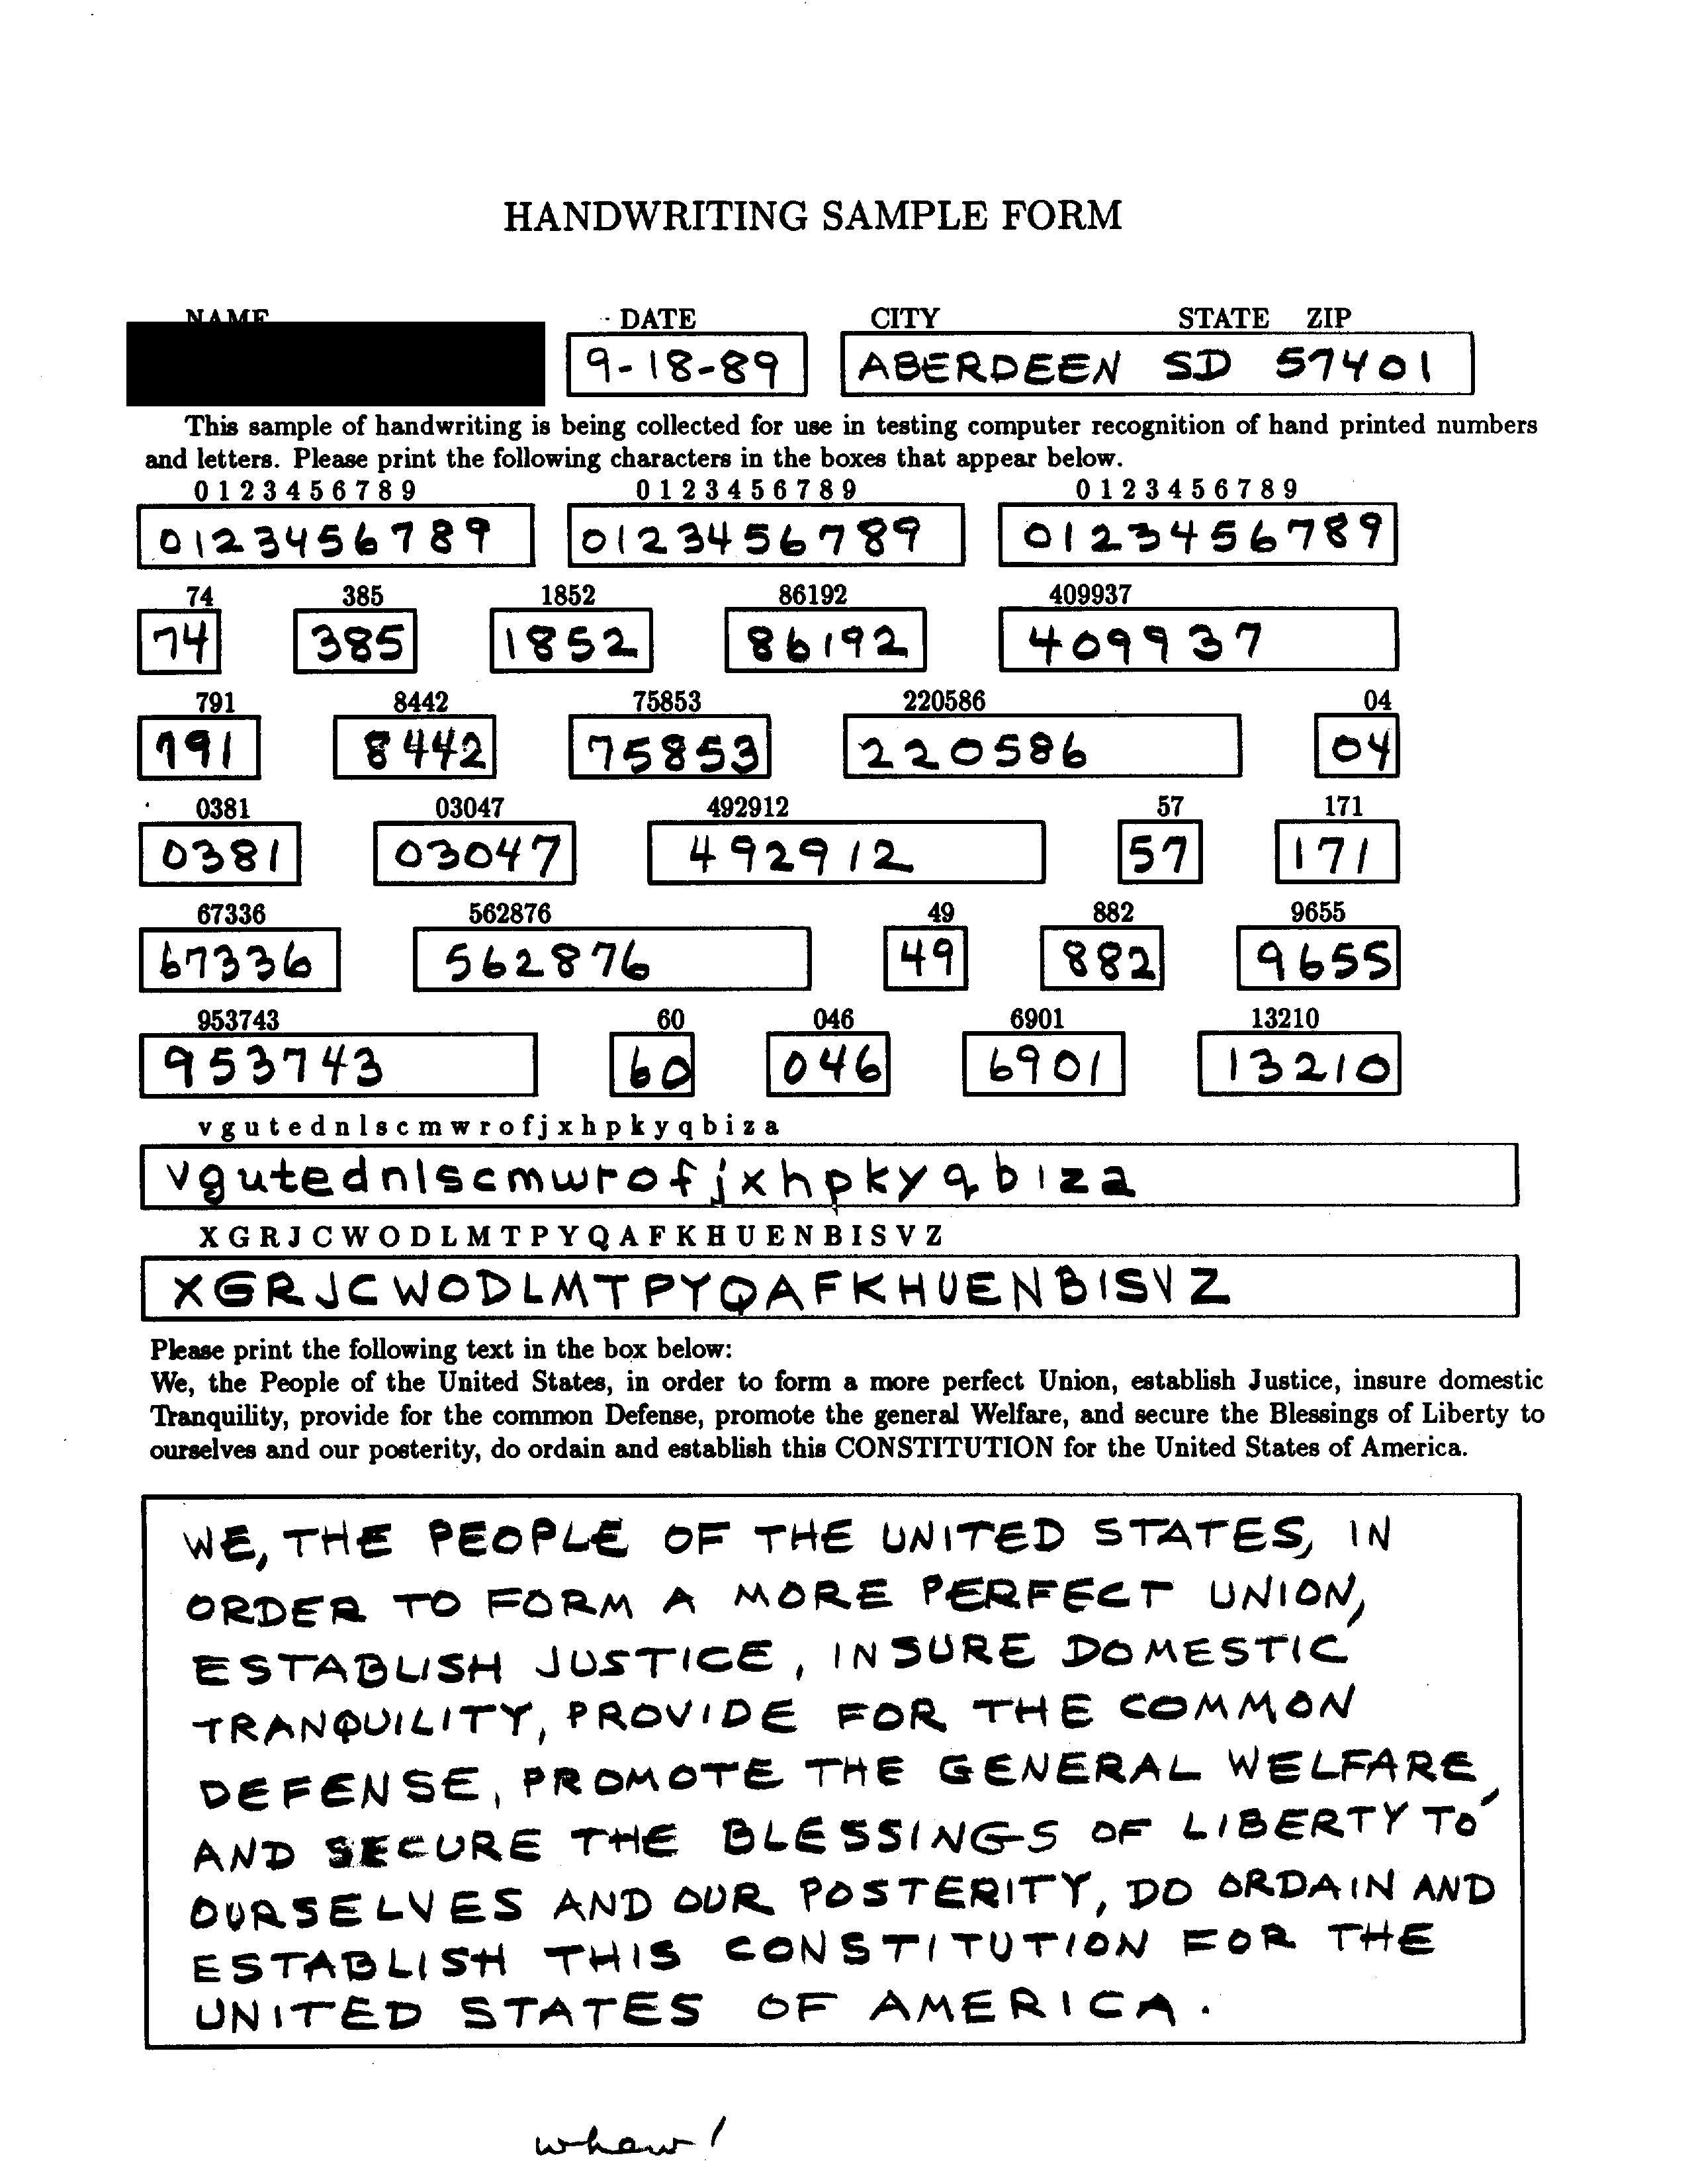 HANDWRITING SAMPLE FORM
NAME DATE CITY STATE ZIP
9-18-89 ABERDEEN SD 57401
This sample of handwriting is being collected for use in testing computer recognition of hand printed numbers
and letters. Please print the following characters in the boxes that appear below.
0 1 2 3 4 5 6 7 8 9 0 1 2 3 4 5 6 7 8 9 0 1 2 3 4 5 6 7 8 9
0123456789 0123456789 0123456789
74 385 1852 86192 409937
74 385 1852 86192 409937
791 8442 75853 220586 04
791 8442 75853 220586 04
0381 03047 492912 57 171
0381 03047 492912 57 171
67336 562876 49 882 9655
67336 562876 49 882 9655
953743 60 046 6901 13210
953743 60 046 6901 13210
v g u t e d n l s c m w r o f j x h p k y q b i z a
vgutednlscmwrofjxhpkyqbiza
X G R J C W O D L M T P Y Q A F K H U E N B I S V Z
XGRJCWODLMTPYQAFKHUENBISVZ
Please print the following text in the box below:
We, the People of the United States, in order to form a more perfect Union, establish Justice, insure domestic
Tranquility, provide for the common Defense, promote the general Welfare, and secure the Blessings of Liberty to
ourselves and our posterity, do ordain and establish this CONSTITUTION for the United States of America.
WE, THE PEOPLE OF THE UNITED STATES, IN
ORDER TO FORM A MORE PERFECT UNION,
ESTABLISH JUSTICE, INSURE DOMESTIC
TRANQUILITY, PROVIDE FOR THE COMMON
DEFENSE, PROMOTE THE GENERAL WELFARE,
AND SECURE THE BLESSINGS OF LIBERTY TO
OURSELVES AND OUR POSTERITY, DO ORDAIN AND
ESTABLISH THIS CONSTITUTION FOR THE
UNITED STATES OF AMERICA.
whew!